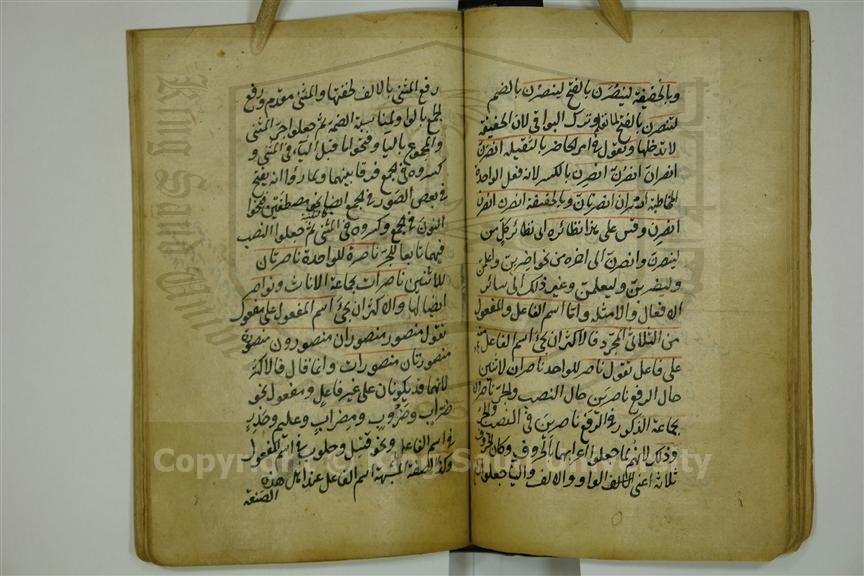 وبالخفيفة لينصرن بالفتح لينصرن بالضم
لتنصرن بالفتح وترك البواقي لان الخفيفة
لا تدخلها وتقول في امر الحاضر بالثقيلة انصرن
انصران انصرن انصرن بالكسر لانه فعل الواحدة
المخاطبة انصران انصرنان وبالخفيفة انصرن انصرن
انصرن وقس على هذا نظائره اي نظائر كل من
لينصرن وانصرن الى اخره من نحو اضربن واعلمن
وليضربن وليعلمن وغير ذلك الى سائر
الافعال والامثلة واما اسم الفاعل والمفعول
من الثلاثي المجرد فالاكثر ان يجئ اسم الفاعل منه
على فاعل تقول ناصر للواحد ناصران للاثنين
حال الرفع ناصرين حال النصب والجر ناصرون
لجماعة الذكور في الرفع ناصرين في النصب والجر
وذلك لانهم لما جعلوا اعرابها بالحروف وكان الحروف
ثلاثة اعني الواو والالف واليا جعلوا
رفع المثنى بالالف لخفتها والمثنى مقدم ورفع
الجمع بالواو لمناسبة الضمة ثم جعلوا جر المثنى
والمجموع باليا وفتحوا ما قبل الياء في المثنى و
كسروه في الجمع فرقا بينهما ولما رأوا انه يفتح
في بعض الصور في الجمع ايضا نحو مصطفين فتحوا
النون في الجمع وكسروه في المثنى ثم جعلوا النصب
فيهما تابعا للجر ناصرة للواحدة ناصرتان
للاثنين ناصرات لجماعة الاناث ونواصر
ايضا لها والاكثر ان يجئ اسم المفعول على مفعول
تقول منصور منصوران منصورون منصورة
منصورتان منصورات وانما قال فالاكثر
لانهما قد يكونان على غير فاعل ومفعول نحو
ضراب وضروب ومضراب وعليم وحذر
في اسم الفاعل ونحو قتيل وحلوب في اسم المفعول
وكذا الصفة المشبهة اسم الفاعل عند اهل هذه
الصنعة
Copyright © King Saud University